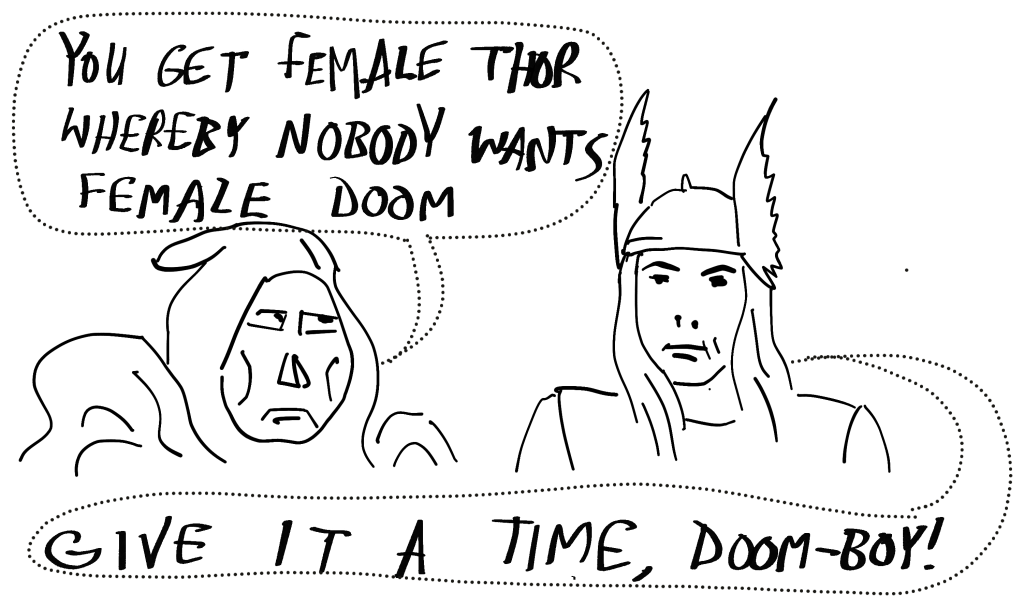 YOU GET FEMALE THOR
WHEREBY NOBODY WANTS
FEMALE DOOM
GIVE IT A TIME, DOOM-BOY!